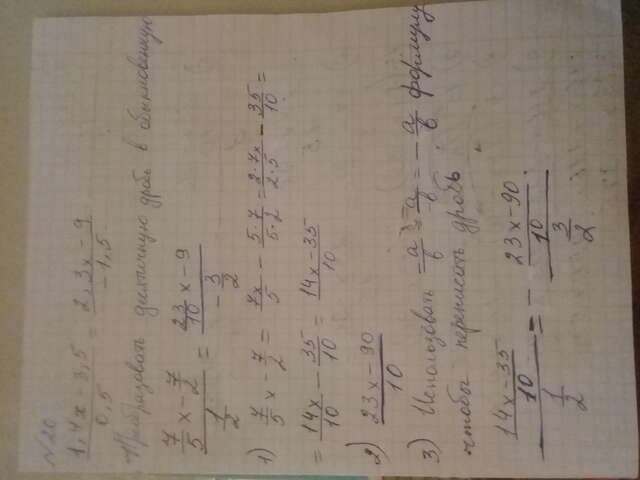 №20
1,4x - 3,5 / 0,5 = 2,3x - 9 / -1,5
Преобразовать десятичную дробь в обыкновенную
7/5 x - 7/2 / 1/2 = 23/10 x - 9 / - 3/2
1) 7/5 x - 7/2 = 7x/5 - 5·7/5·2 = 2·7x/2·5 - 35/10 =
= 14x/10 - 35/10 = 14x-35/10
2) 23x-90/10
3) Использовать -a/b = a/-b = - a/b формулу,
чтобы переписать дробь
14x-35/10 / 1/2 = - 23x-90/10 / 3/2